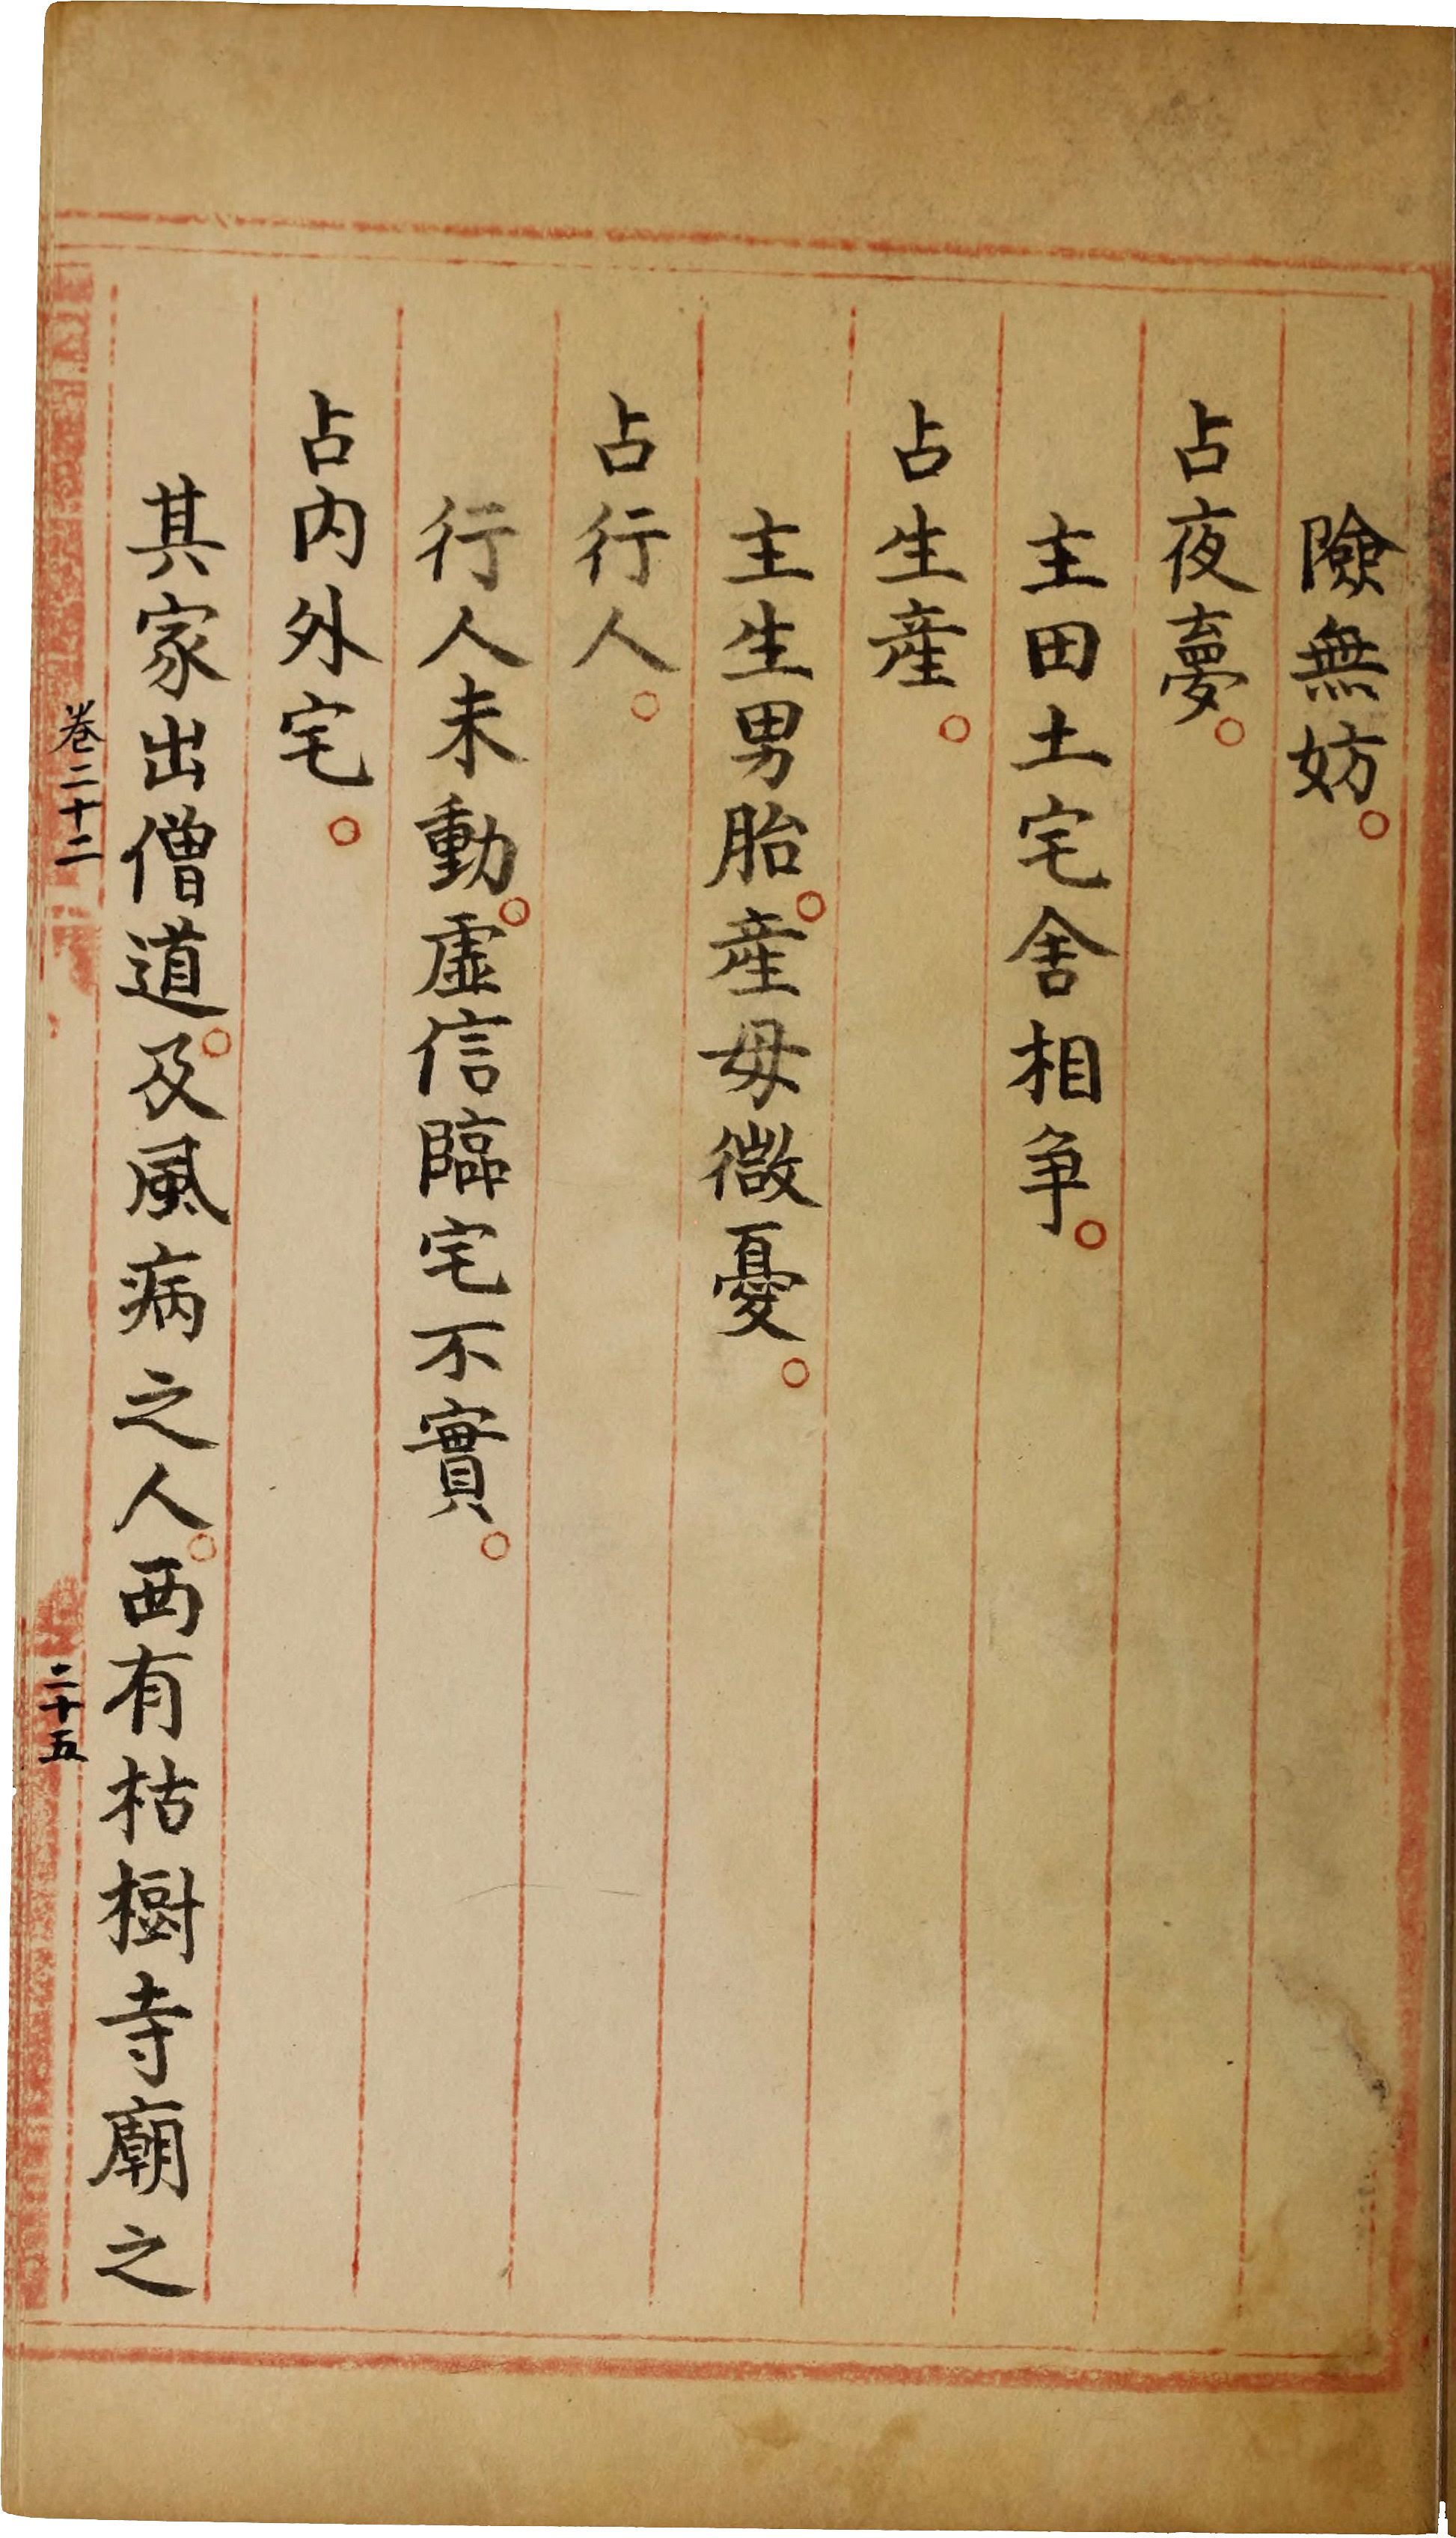 險無妨。
占夜夢。
主田土宅舍相爭。
占生産。
主生男胎。産母微憂。
占行人。
行人未動。虛信臨宅不實。
占内外宅。
其家出僧道。及風病之人。西有枯樹寺廟之
卷二十二
二十五